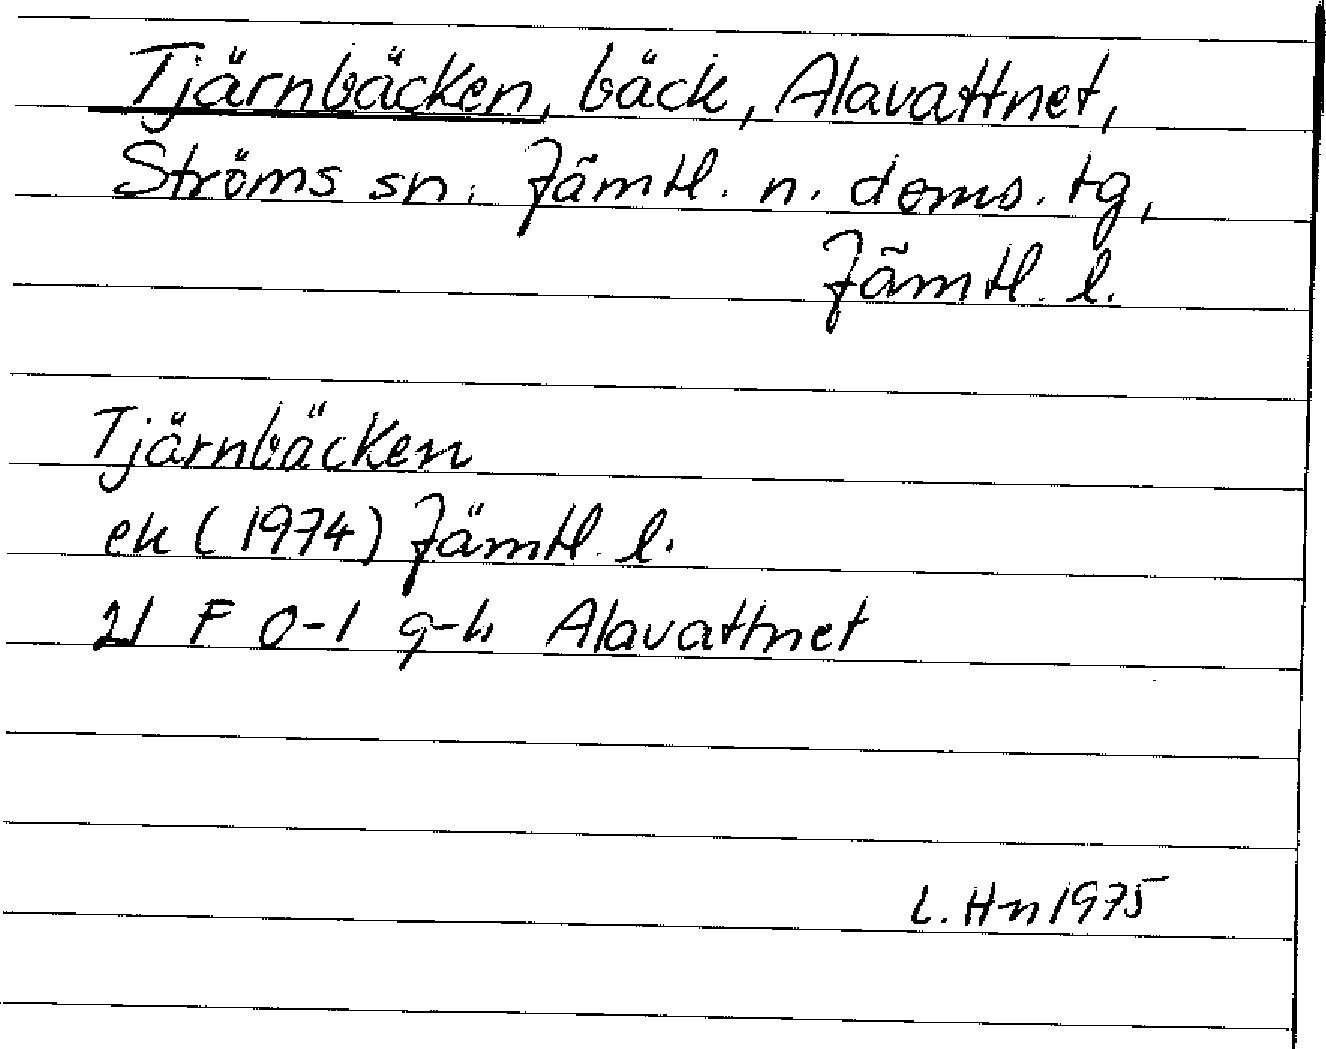 Tjärnbäcken, bäck, Alavattnet,
Ströms sn. Jämtl. n. doms. tg,
Jämtl. l.
Tjärnbäcken
ek (1974) Jämtl. l.
21 F 0-1 g-h Alavattnet
L. H-n 1975